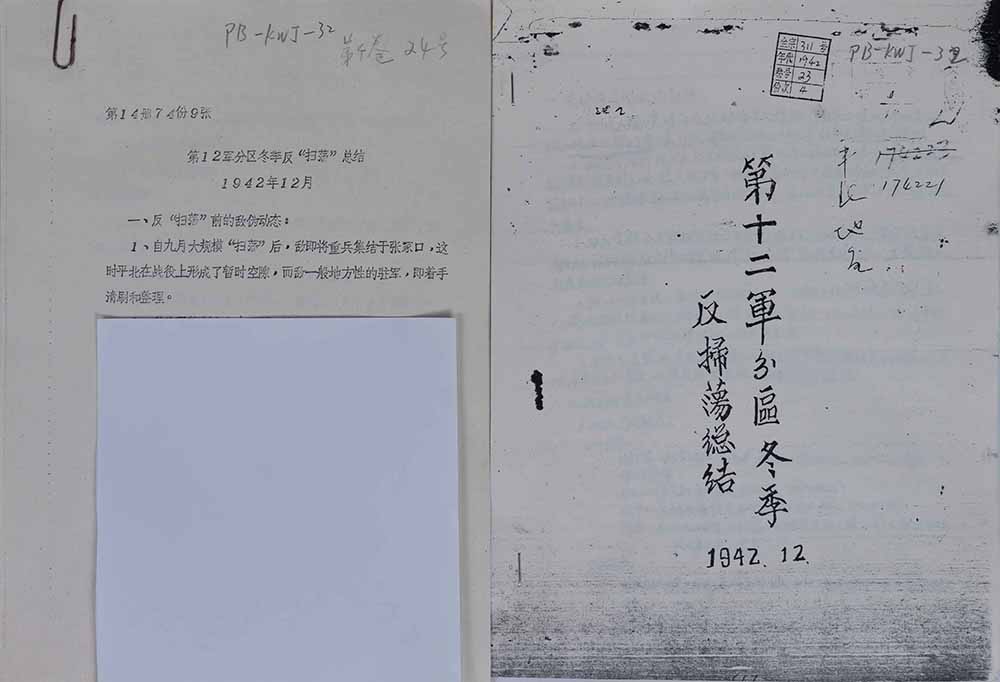 PB-KWJ-32
24号
第14册74份9张
第12军分区冬季反“扫荡”总结
1942年12月
一、反“扫荡”前的敌伪动态：
1、自九月大规模“扫荡”后，敌即将重兵集结于张家口，这
时平北在战役上形成了暂时空隙，而敌一般地方性的驻军，即着手
清剿和整理。
全宗 311 号
年代 1942
卷号 23
份次 4
PB-KWJ-32
174221
第十二軍分區冬季
反掃蕩総结
1942.12.